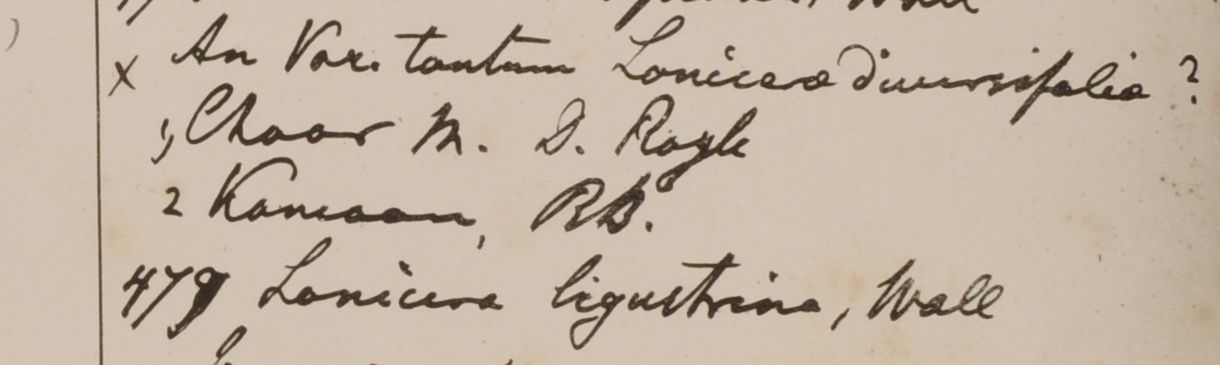 Wall
x An Var. tantum Loniceræ diversifoliæ ?
1, Choor M. D. Royle
2 Kamaon, RB.
479 Lonicera ligustrina, Wall